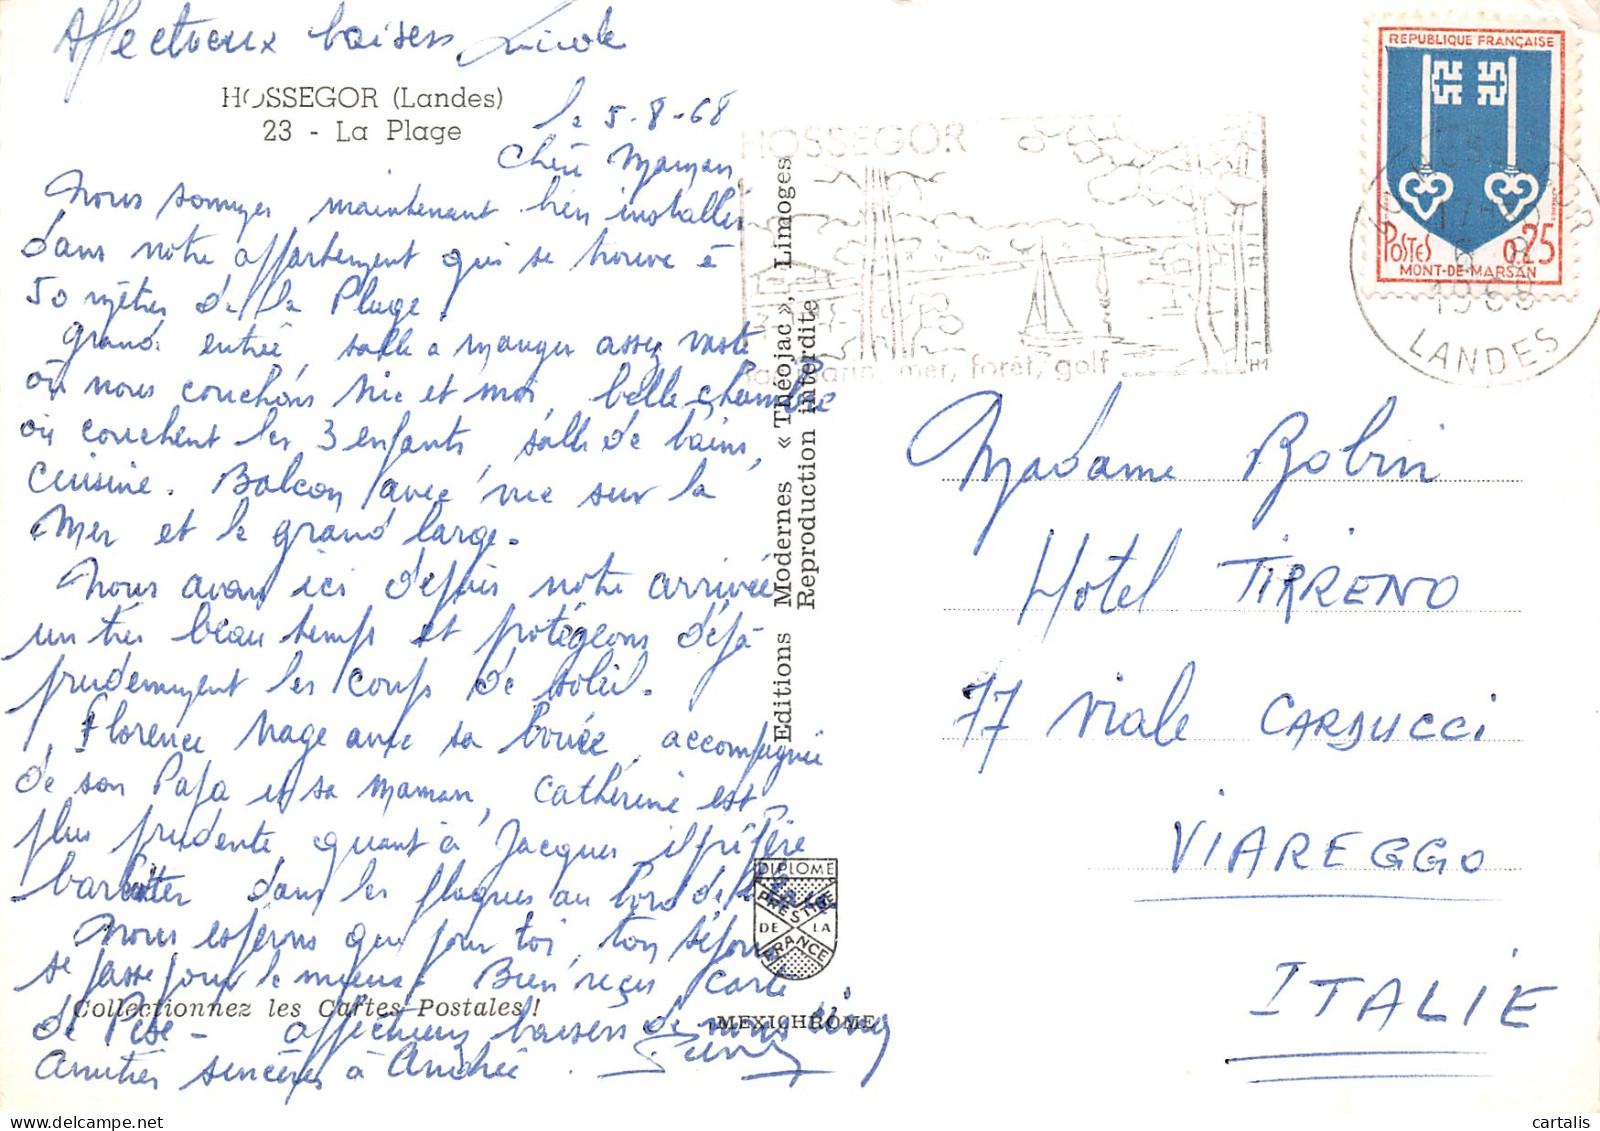 Affectueux baisers Nicole
HOSSEGOR (Landes)
23 - La Plage
le 5-8-68
Chère Maman
Nous sommes maintenant bien installés
dans notre appartement qui se trouve à
50 mètres de la Plage.
Grande entrée, salle à manger assez vaste
où nous couchons Nic et moi, belle chambre
où couchent les 3 enfants, salle de bains,
cuisine. Balcon avec vue sur la
Mer et le grand large.
Nous avons ici depuis notre arrivée
un très beau temps et protégeons déjà
prudemment les coups de soleil.
Florence nage avec sa bouée, accompagnée
de son Papa et sa maman, Catherine est
plus prudente quant à Jacques il préfère
barboter dans les flaques au bord de l'eau
Nous espérons que pour toi, ton séjour
se passe pour le mieux. Bien reçu carte
de Pise - affectueux baisers de nous cinq
Amitiés sincères à Andrée.
Collectionnez les Cartes Postales!
Editions Modernes « Théojac », Limoges
Reproduction interdite
DIPLOME
PRESTIGE
DE LA
FRANCE
MEXICHROME
HOSSEGOR
mer, forêt, golf
REPUBLIQUE FRANÇAISE
POSTES 0,25
MONT-DE-MARSAN
HOSSEGOR
17H
5-8
1968
LANDES
Madame Bobin
Hotel TIRRENO
77 Viale CARDUCCI
VIAREGGO
ITALIE
cartalis